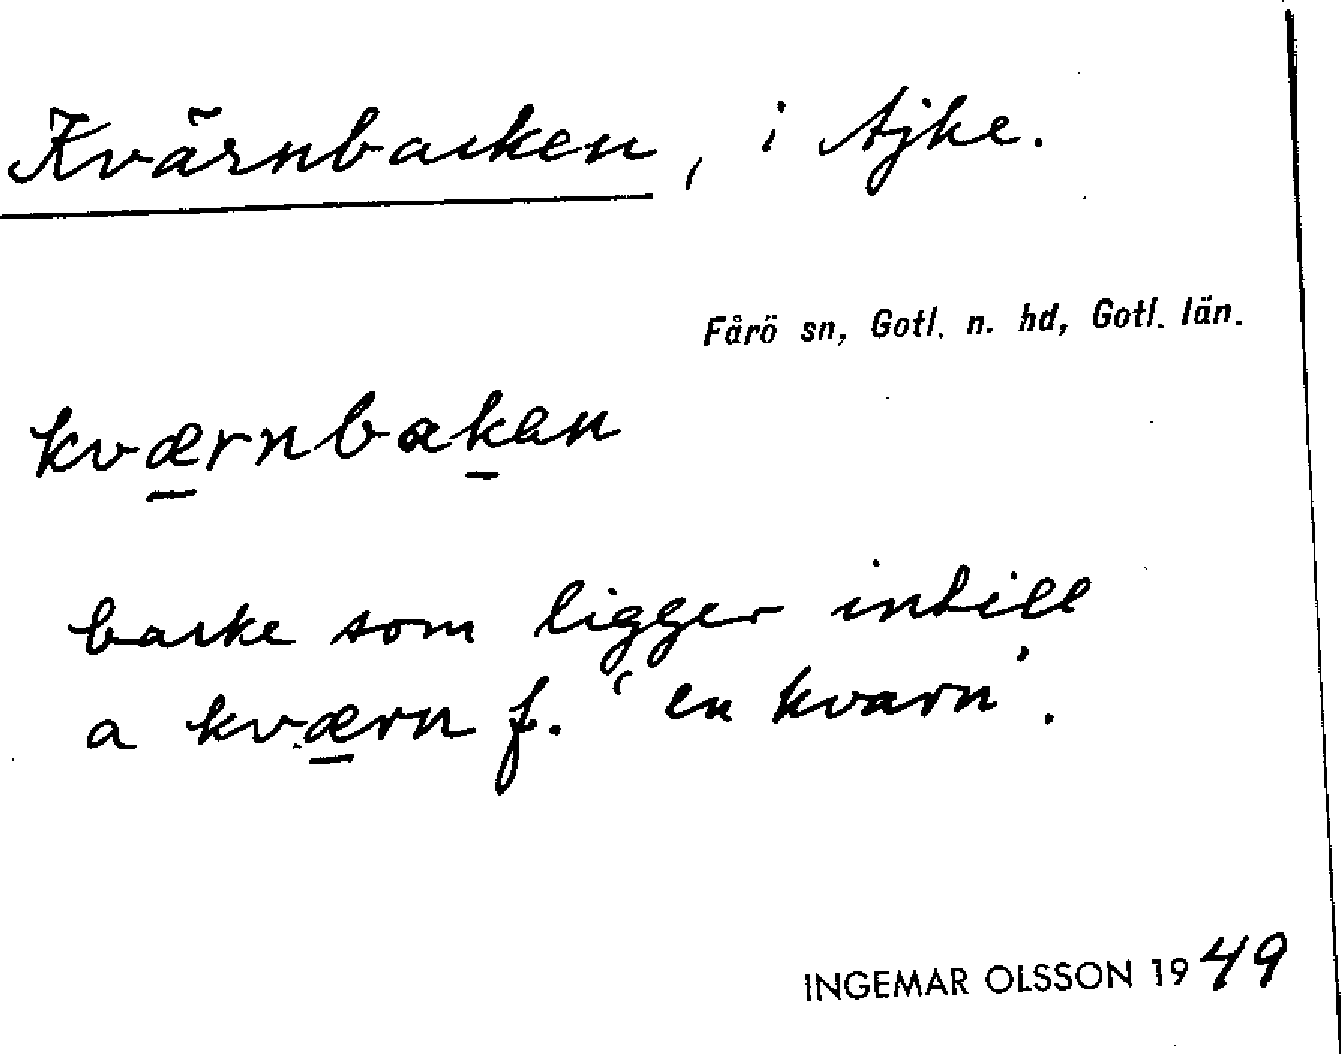 Kvärnbacken, i Ajke.
Fårö sn, Gotl. n. hd, Gotl. län.
kværnbakan
backe som ligger intill
a kværn f. ‘en kvarn’.
INGEMAR OLSSON 1949